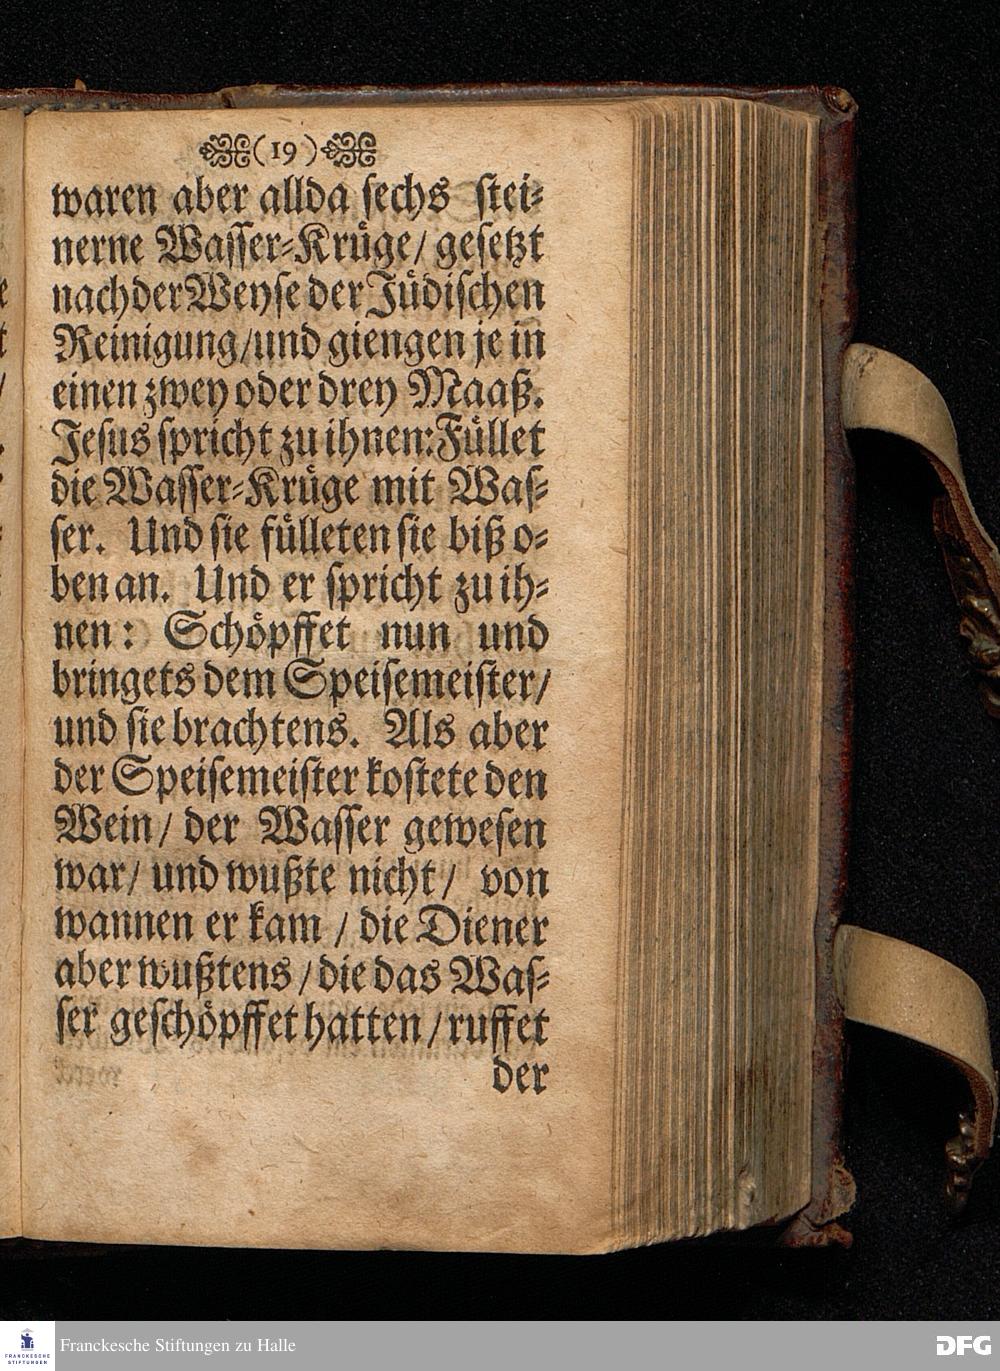 (19)
waren aber allda sechs stei-
nerne Wasser-Krüge/ gesetzt
nach der Weyse der Jüdischen
Reinigung/und giengen je in
einen zwey oder drey Maaß.
Jesus spricht zu ihnen: Füllet
die Wasser-Krüge mit Was-
ser. Und sie fülleten sie biß o-
ben an. Und er spricht zu ih-
nen: Schöpffet nun und
bringets dem Speisemeister/
und sie brachtens. Als aber
der Speisemeister kostete den
Wein/ der Wasser gewesen
war/ und wußte nicht/ von
wannen er kam / die Diener
aber wußtens / die das Was-
ser geschöpffet hatten / ruffet
der
FRANCKESCHE
STIFTUNGEN
Franckesche Stiftungen zu Halle
DFG